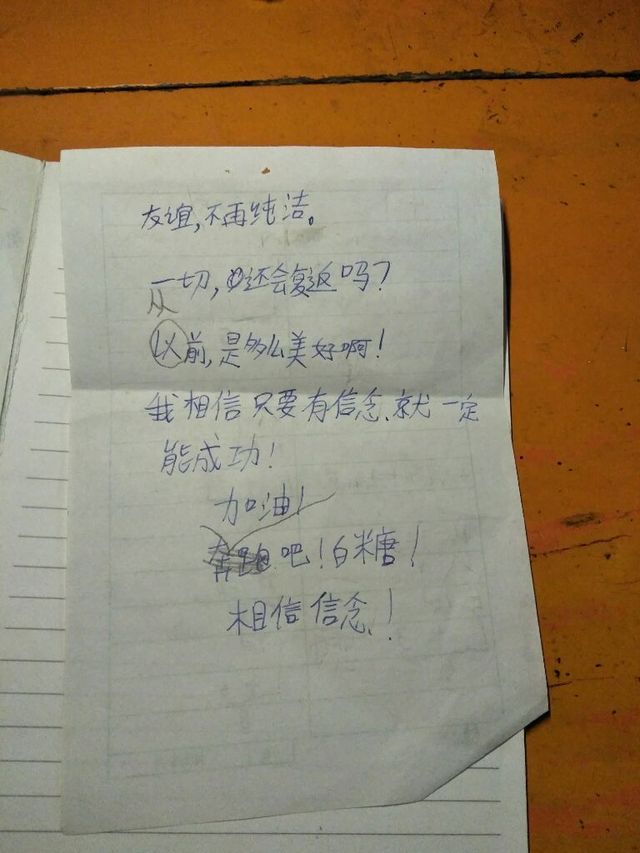 友谊,不再纯洁。
一切,还会复返吗?
从
以前,是多么美好啊!
我相信只要有信念、就一定
能成功!
加油!
奔跑吧!白糖!
相信信念、!